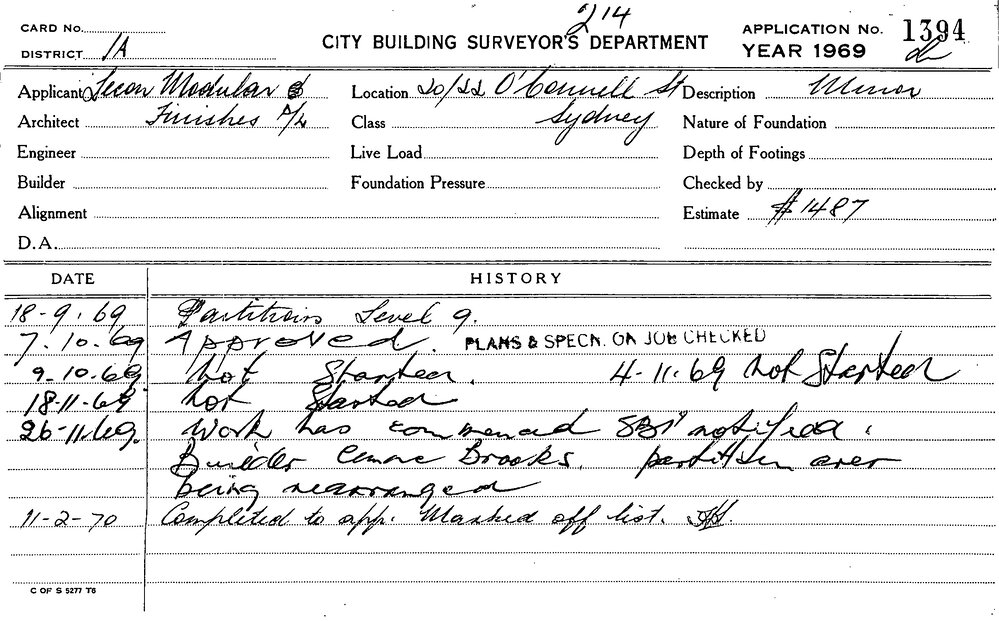 214
CARD No.
APPLICATION No. 1394
DISTRICT 1A
CITY BUILDING SURVEYOR'S DEPARTMENT
YEAR 1969
Applicant Modular
Location 20/22 O'Connell St
Description Minor
Architect Finishes P/L
Class Sydney
Nature of Foundation
Engineer
Live Load
Depth of Footings
Builder
Foundation Pressure
Checked by
Alignment
Estimate $1487
D.A.
DATE HISTORY
18-9-69 Partitions Level 9.
7.10.69 Approved. PLANS & SPECN. ON JOB CHECKED
9-10-69 Not Started. 4-11-69 Not Started
18-11-69 Not Started
26-11-69. Work has commenced notified.
Builder Brooks. partition
being rearranged
11-2-70 Completed to app. Marked off list.
C OF S 5277 T6